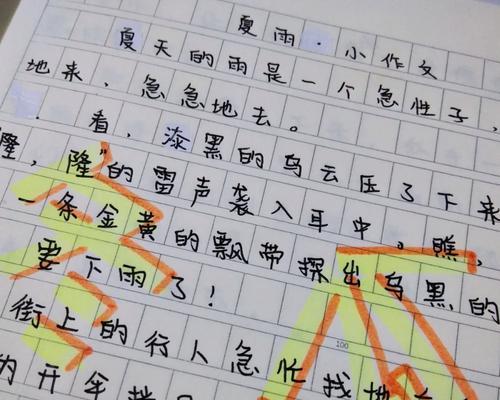 夏雨·小作文
夏天的雨是一个急性子,
地来,急急地去。
看,漆黑的乌云压了下来
隆,隆"的雷声袭入耳中。瞧,
一条金黄的飘带探出乌黑的
要下雨了!
街上的行人急忙找地
为开车
100